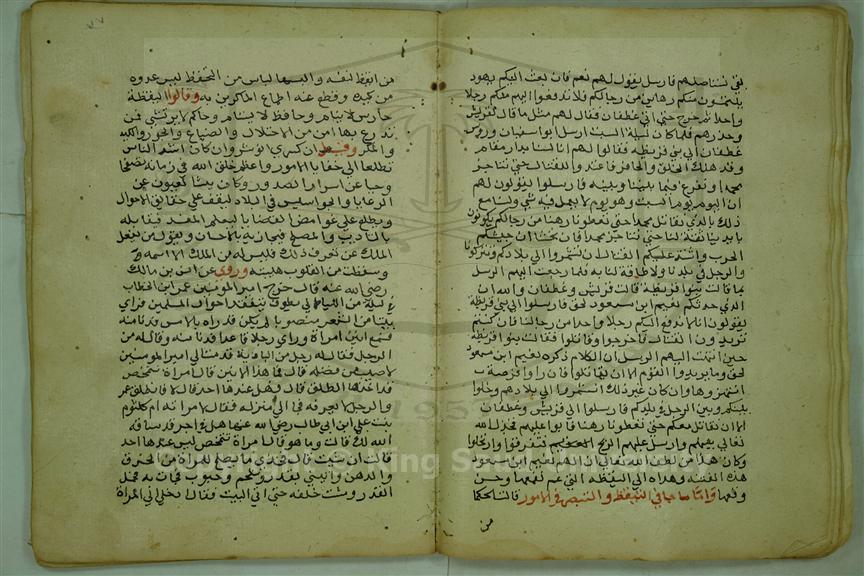 لقى نتناصلهم فارسل يقول لهم نعم فان بعث اليكم يهود
يلتمسون منكم رهاين من رجالكم فلا تدفعوا اليهم منكم رجلا
واحدا ثم خرج حتى اتى غطفان فقال لهم مثل ما قال لقريش
وحذرهم فلما كان ليلة السبت ارسل ابو سفيان وروس
غطفان الى بني قريظة فقالوا لهم انا لسنا بدار مقام
وقد هلك الخف والحافر فاغدوا للقتال حتى نناجز
محمدا ونفرغ فيما بيننا وبينه فارسلوا يقولون لهم
ان اليوم يوم السبت وهو يوم لا يعمل فيه شي ولسنا مع
ذلك بالذي نقاتل محمدا حتى تعطونا رهنا من رجالكم يكونون
بايدينا ثقة لنا حتى نناجز محمدا فان نخشا ان ضرستكم
الحرب واشتد عليكم القتال ان تشمروا الى بلادكم وتتركونا
والرجل في بلدنا ولا طاقة لنا به فلما رجعت اليهم الرسل
بما قالت بنوا قريظة قالت قريش وغطفان والله ان
الذي حدثكم نعيم ابن مسعود لحق فارسلوا الى بني قريظة
يقولون انا لا ندفع اليكم رجلا واحدا من رجالنا فان كنتم
تريدون القتال فاخرجوا وقاتلوا فقالت بنوا قريظة
حين انتهت اليهم الرسل ان الكلام ذكره نعيم ابن مسعود
لحق وما يريدوا القوم الا ان يقاتلوا فان راوا فرصة
انتهزوها وان كان غير ذلك انشمروا الى بلادهم وخلوا
بينكم وبين الرجل في بلدكم فارسلوا الى قريش وغطفان
انا لن نقاتل معكم حتى تعطونا رهنا فابوا عليهم فخذل الله
تعالى بينهم وارسل عليهم الريح فتفرقوا وارتحلوا
وكان هذا من لطف الله تعالى ان الهم نعيم ابن مسعود
هذه الفتنة وهداه الى اليقظة التي عم نفعها وحسن
وقعها واما ما جا في التيقظ والتبصر في الامور قالت الحكما
من
من ايقظ نفسه والبسها لباس من التحفظ ليس عدوه
من كيده وقطع عنه اطماع الماكرين به وقالوا اليقظة
حارس لا ينام وحافظ لا ينام وحاكم لا يرتشي فمن
تدرع بها امن من الاختلال والضياع والجور والكيد
والمكر وقيل ان كسرى انوشروان كان اشد الناس
تطلعا الى خفايا الامور واعظم خلق الله في زمانه تفحصا
وبحثا عن اسرار الصدور وكان يبث العيون عن
الرعايا والجواسيس في البلاد ليقف على حقايق الاحوال
ويطلع على غوامض القضايا ليعلم المفسد فيقابله
بالتاديب والمصلح فيجازيه بالاحسان ويقول من غفل
الملك عن تعرف ذلك فليس له من الملك الا اسمه
وسقطت من القلوب هيبته وروي عن انس بن مالك
رضي الله عنه قال خرج امير المومنين عمر بن الخطاب
في ليلة من الليالي يطوف يتفقد احوال المسلمين فراى
بيتا من الشعر منصوبا لم يكن قد راه بالامس فدنا منه
فسمع انين امراة وراى رجلا قاعدا فدنا منه وقال له من
الرجل فقال له رجل من البادية قدمت الى امير المومنين
لاصيب من فضله قال فما هذا الانين قال امراة تتمخض
قد اخذها الطلق قال وهل عندها احد قال لا فانطلق عمر
والرجل لا يعرفه فجا الى منزله فقال لامراته ام كلثوم
بنت علي ابن ابي طالب رضي الله عنها هل في اجر قد ساقه
الله لك قالت وما هو قال امراة تتمخض ليس عندها احد
قالت ان شيت قال فخذي ما يصلح للمراة من الخرق
والدهن وائتيني بقدر وشحم وحبوب فجات به فحمل
القدر ومشت خلفه حتى اتى البيت فقال ادخلي الى المراة